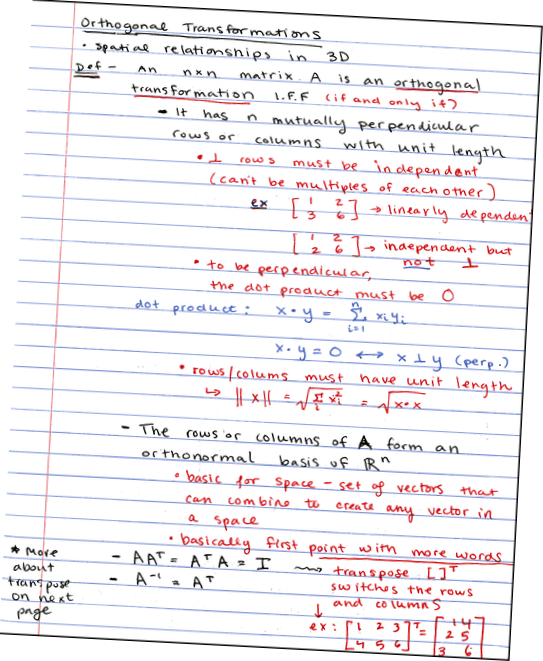 Orthogonal Transformations
• spatial relationships in 3D
Def - An nxn matrix A is an orthogonal
transformation I.F.F (if and only if)
- It has n mutually perpendicular
rows or columns with unit length
• ⊥ rows must be independent
(can't be multiples of each other)
ex [1 2; 3 6] → linearly dependent
[1 2; 2 6] → independent but
not ⊥
• to be perpendicular,
the dot product must be 0
dot product: x • y = Σⁿᵢ₌₁ xᵢyᵢ
x • y = 0 ↔ x ⊥ y (perp.)
• rows/colums must have unit length
↳ ||x|| = √(Σᵢⁿ xᵢ²) = √(x•x)
- The rows or columns of A form an
orthonormal basis of ℝⁿ
• basic for space - set of vectors that
can combine to create any vector in
a space
• basically first point with more words
- AAᵀ = AᵀA = I → transpose [ ]ᵀ
- A⁻¹ = Aᵀ
switches the rows
and columns
↓
ex: [1 2 3; 4 5 6]ᵀ = [1 4; 2 5; 3 6]
* More
about
transpose
on next
page